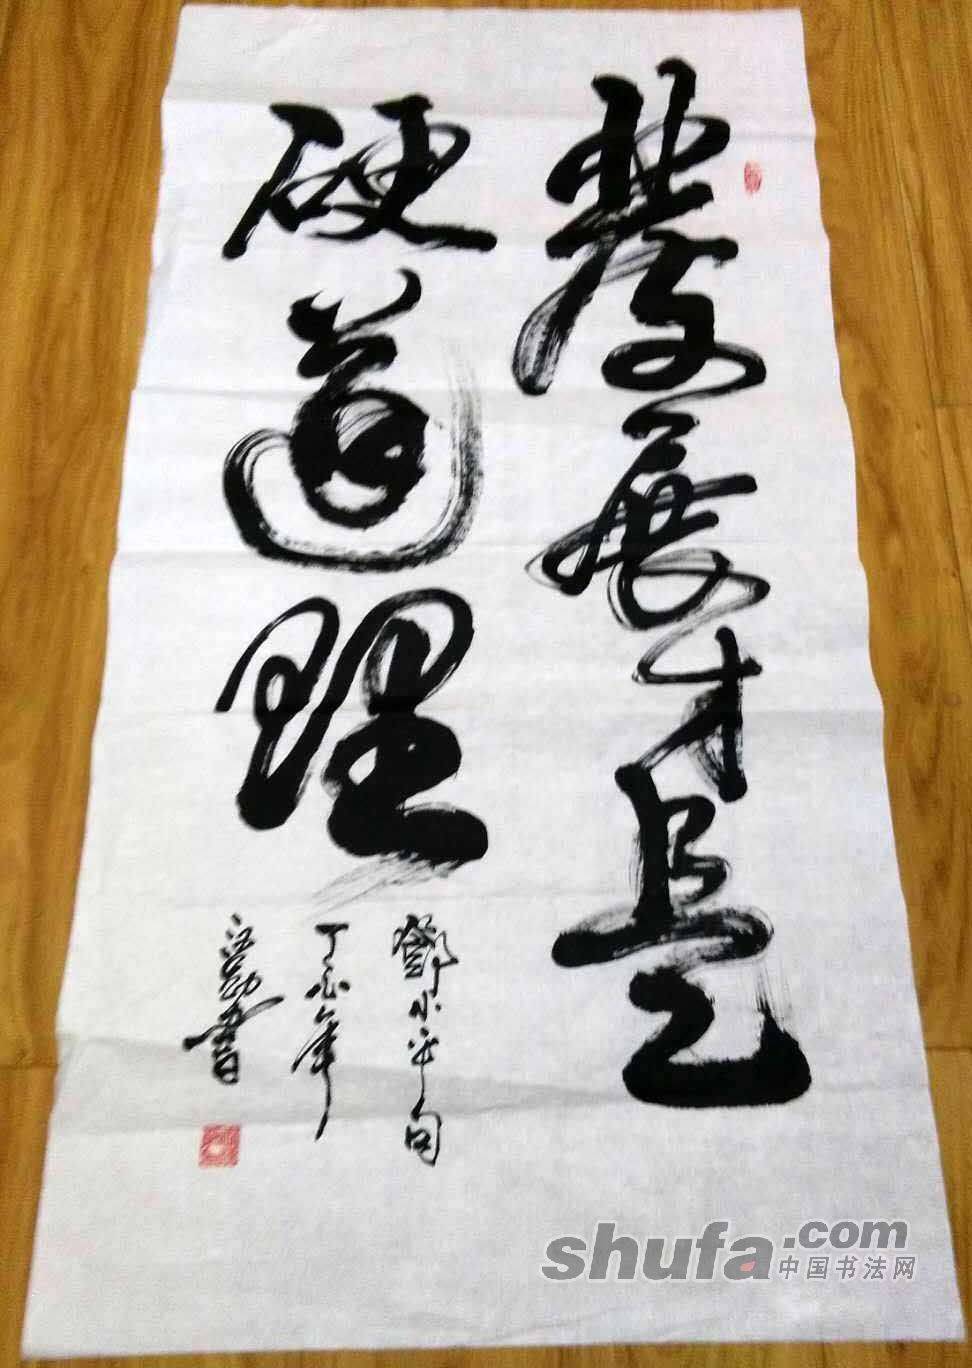 發展才是
硬道理
鄧小平句
丁年
書
shufa.com
中国书法网